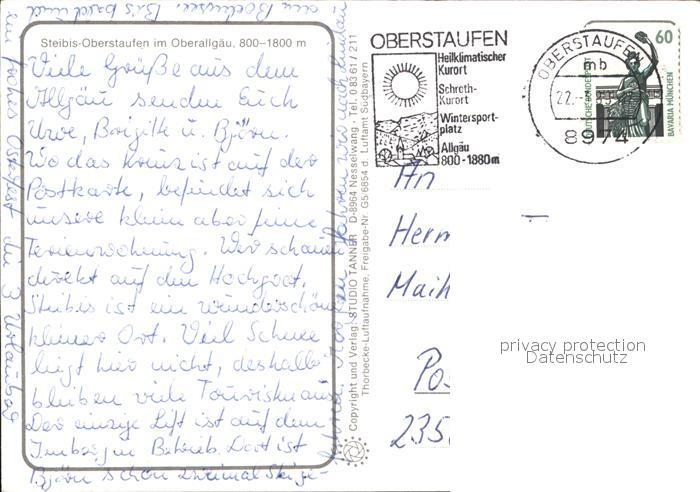 Steibis-Oberstaufen im Oberallgäu, 800–1800 m
Viele Grüße aus dem
Allgäu senden Euch
Uwe, Brigitte u. Björn.
Wo das Kreuz ist auf der
Postkarte, befindet sich
unsere kleine aber feine
Ferienwohnung. Wir schauen
direkt auf den Hochgrat.
Steibis ist ein wunderschöner
kleiner Ort. Viel Schnee
liegt hier nicht, deshalb
bleiben viele Touristen aus.
Der einzige Lift ist auf dem
Imberg in Betrieb. Dort ist
Björn schon zweimal Skige-
fahren. Morgen fahren wir nach Lindau
am Bodensee. Bis bald und
ein frohes Osterfest die 3 Urlauber
Copyright und Verlag: STUDIO TANNER D-8964 Nesselwang · Tel. 0 83 61 / 211
Thorbecke-Luftaufnahme, Freigabe-Nr. G5/6854 d. Luftamt Südbayern
OBERSTAUFEN
Heilklimatischer
Kurort
Schroth-
Kurort
Wintersport-
platz
Allgäu
800-1880m
OBERSTAUFEN
mb
22.
8974
60
DEUTSCHE BUNDESPOST
BAVARIA MÜNCHEN
An
Herm
Maih
Pos
235
privacy protection
Datenschutz